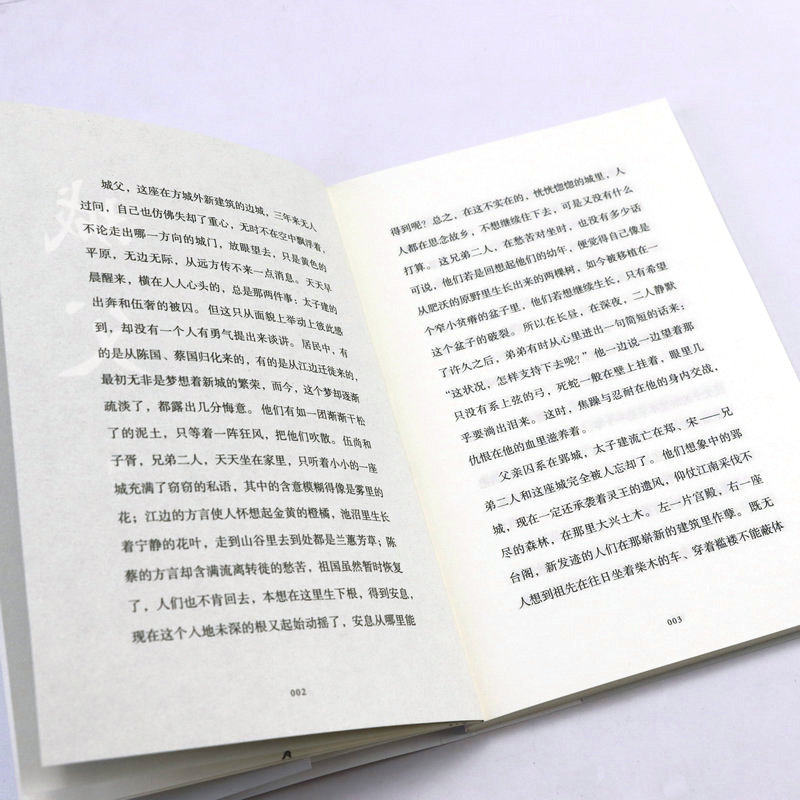 城父，这座在方城外新建筑的边城，三年来无人
过问，自己也仿佛失却了重心，无时不在空中飘浮着，
不论走出哪一方向的城门，放眼望去，只是黄色的
平原，无边无际，从远方传不来一点消息。天天早
晨醒来，横在人人心头的，总是那两件事：太子建的
出奔和伍奢的被囚。但这只从面貌上举动上彼此感
到，却没有一个人有勇气提出来谈讲。居民中，有
的是从陈国、蔡国归化来的，有的是从江边迁徙来的，
最初无非是梦想着新城的繁荣，而今，这个梦却逐渐
疏淡了，都露出几分悔意。他们有如一团渐渐干松
了的泥土，只等着一阵狂风，把他们吹散。伍尚和
子胥，兄弟二人，天天坐在家里，只听着小小的一座
城充满了窃窃的私语，其中的含意模糊得像是雾里的
花；江边的方言使人怀想起金黄的橙橘，池沼里生长
着宁静的花叶，走到山谷里去到处都是兰蕙芳草；陈
蔡的方言却含满流离转徙的愁苦，祖国虽然暂时恢复
了，人们也不肯回去，本想在这里生下根，得到安息，
现在这个入地未深的根又起始动摇了，安息从哪里能
002
得到呢？总之，在这不实在的，恍恍惚惚的城里，人
人都在思念故乡，不想继续住下去，可是又没有什么
打算。这兄弟二人，在愁苦对坐时，也没有多少话
可说，他们若是回想起他们的幼年，便觉得自己像是
从肥沃的原野里生长出来的两棵树，如今被移植在一
个窄小贫瘠的盆子里，他们若想继续生长，只有希望
这个盆子的破裂。所以在长昼，在深夜，二人静默
了许久之后，弟弟有时从心里迸出一句简短的话来：
“这状况，怎样支持下去呢？”他一边说一边望着那
只没有系上弦的弓，死蛇一般在壁上挂着，眼里几
乎要淌出泪来。这时，焦躁与忍耐在他的身内交战，
仇恨在他的血里滋养着。
父亲囚系在郢城，太子建流亡在郑、宋——兄
弟二人和这座城完全被人忘却了。他们想象中的郢
城，现在一定还承袭着灵王的遗风，仰仗江南采伐不
尽的森林，在那里大兴土木。左一片宫殿，右一座
台阁，新发迹的人们在那崭新的建筑里作孽。既无
人想到祖先在往日坐着柴木的车、穿着褴褛不能蔽体
003